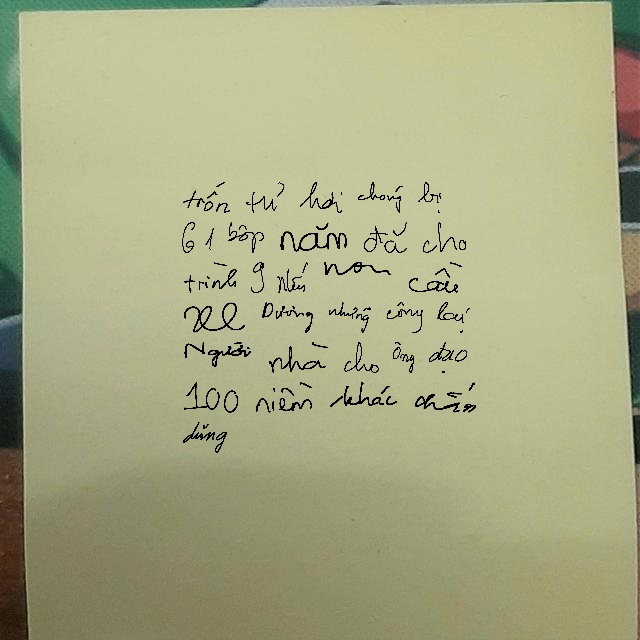 trốn tử hơi chóng bị
61 bộp năm đã cho
trình 9 nếu non cần
xe Dương những công loại
Người nhà cho Ông đạo
100 niềm khác chắn
dũng